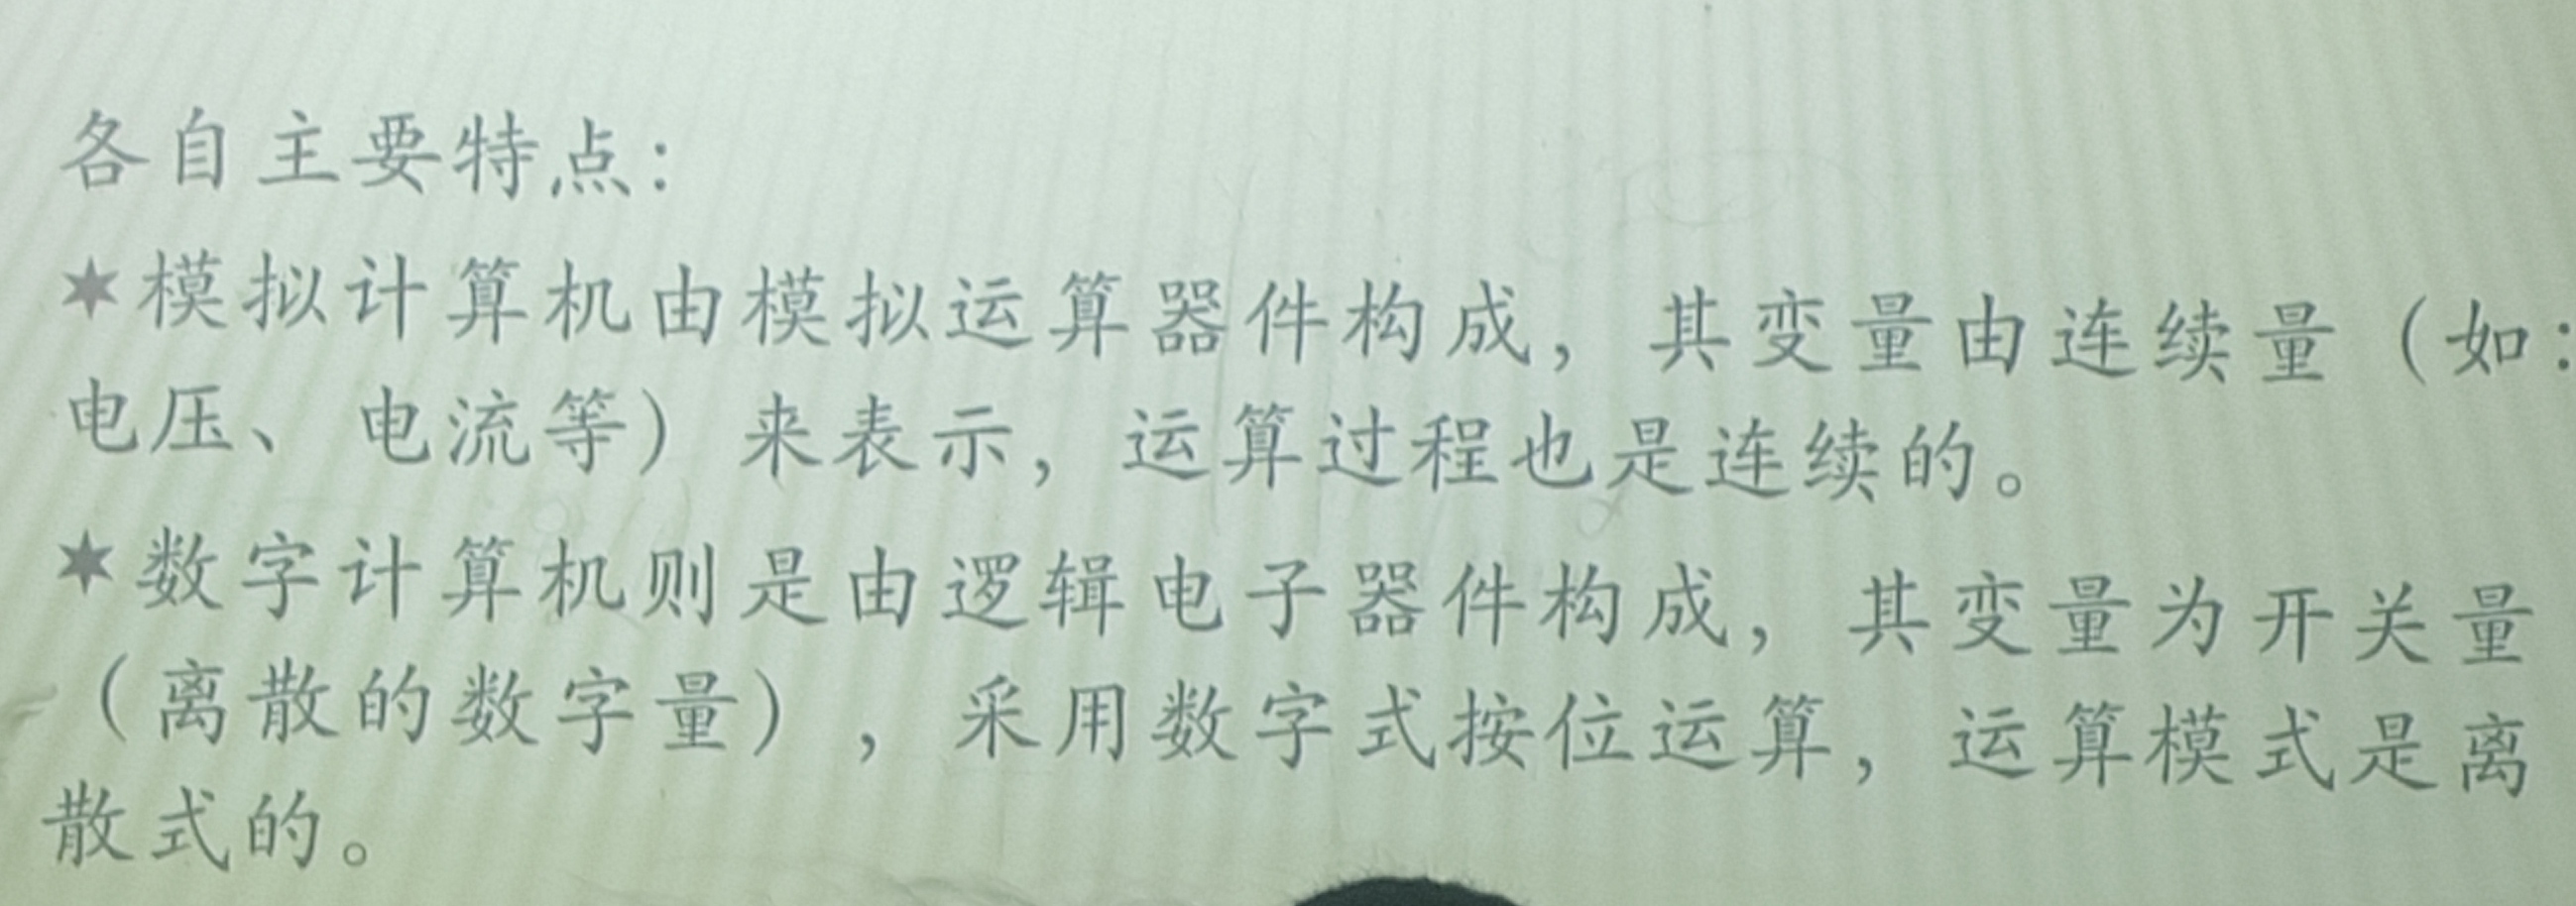 各自主要特点：
✶模拟计算机由模拟运算器件构成，其变量由连续量（如：
电压、电流等）来表示，运算过程也是连续的。
✶数字计算机则是由逻辑电子器件构成，其变量为开关量
（离散的数字量），采用数字式按位运算，运算模式是离
散式的。